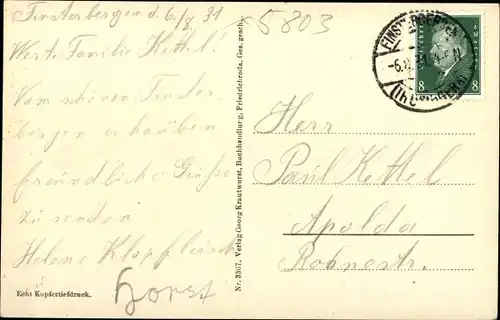 Finsterbergen d. 6/8. 31
Wert. Familie Kettel!
Vom schönen Finster-
bergen erlauben
freundliche Grüße
zu senden
Helene Klopfleisch
Horst
Echt Kupfertiefdruck.
Nr. 3367. Verlag Georg Krautwurst, Buchhandlung, Friedrichroda. Ges. gesch.
5803
8 8
Herr
Paul Kettel
Apolda